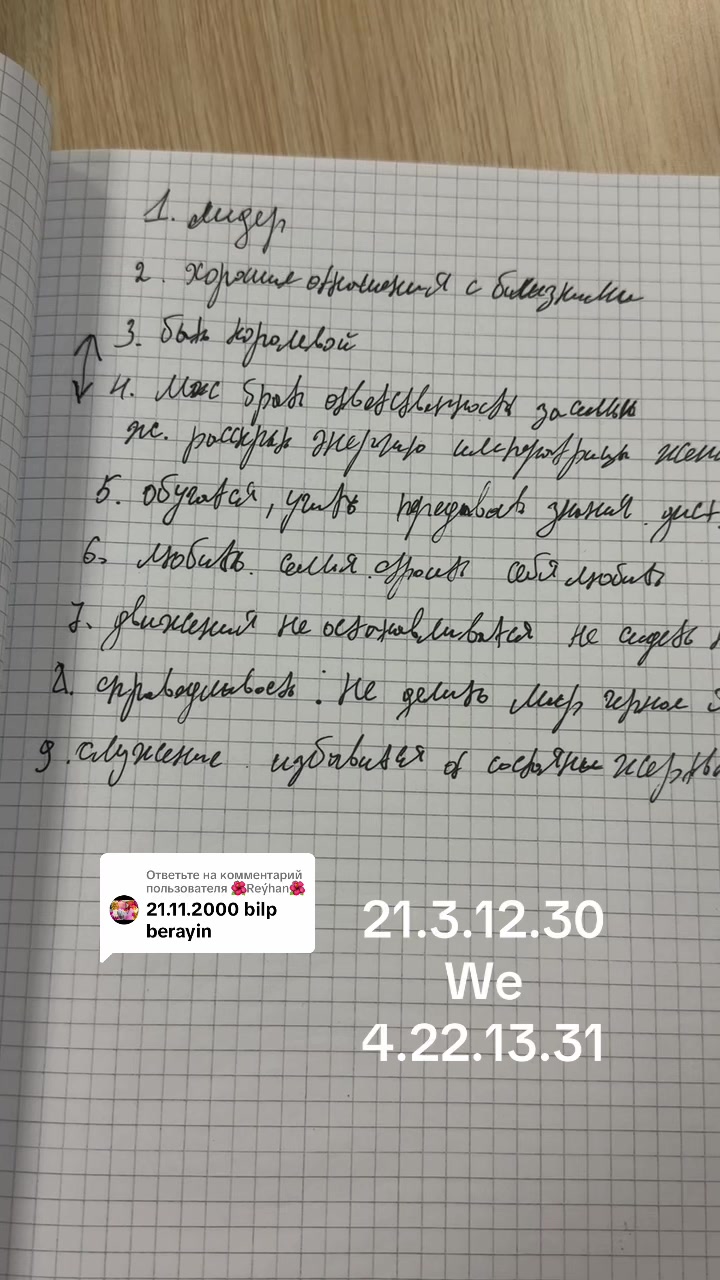 1. лидер
2. хорошие отношения с близкими
3. быть королевой
4. Муж брать ответственность за семью
ж. раскрыть энергию императрицы
5. обучатся, учить передовать знания. дист.
6. любить. семья. строить себя любить
7. движения не останавливатся не сидеть
8. справедливость: Не делить мир черное
9. служение избавится от состояние жертвы
Ответьте на комментарий
пользователя 🌺Reýhan🌺
21.11.2000 bilp
berayin
21.3.12.30
We
4.22.13.31